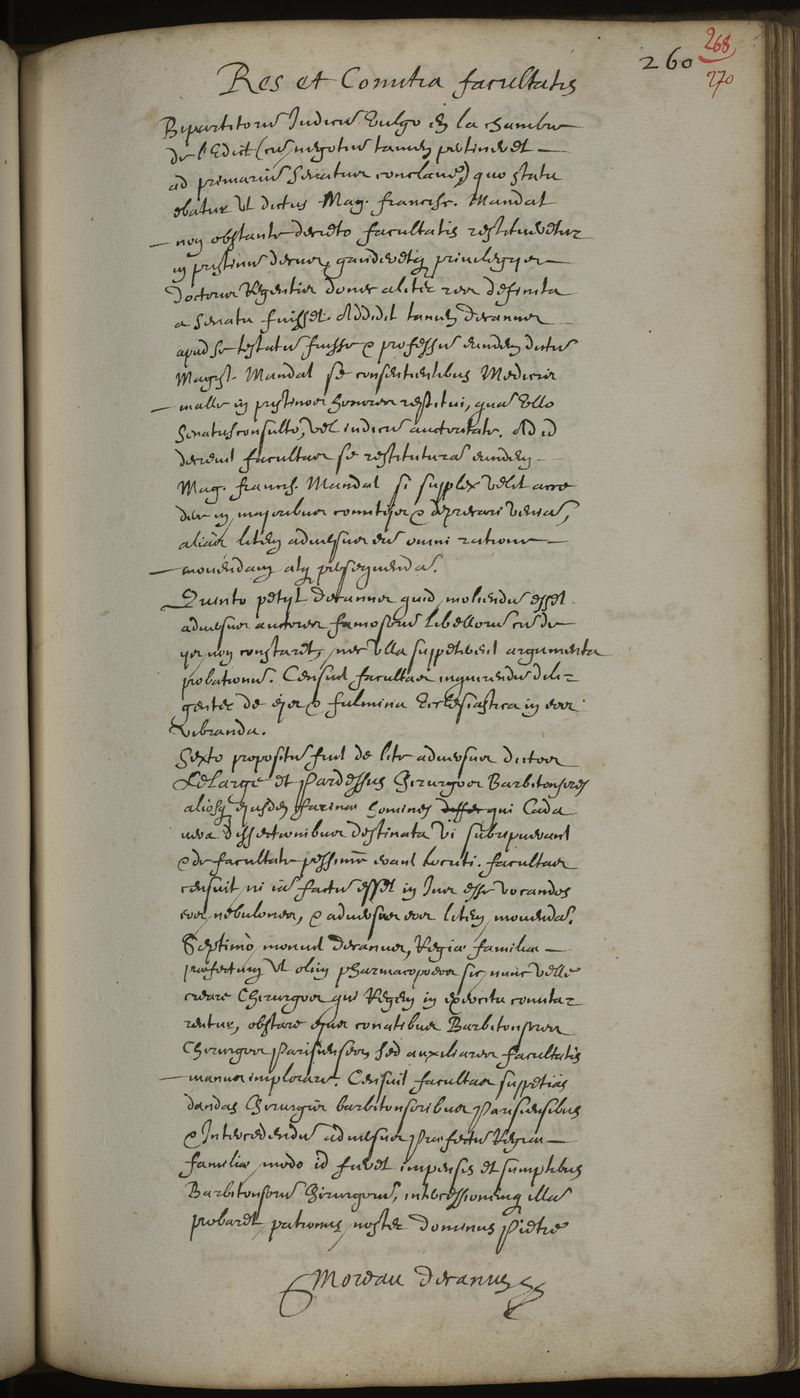 260
268
270
Res et Comitia facultatis
Bipartitorũ Judicũ vulgo en la chambre
de l'Edict (cũ negotiũ tamen pertineret
ad primariũ senatus conclave) quo statu
ebatur ut dictus Mag. francisc. Mandat
non obstante decreto facultatis restitueretur
in pristinũ decus, gauderetq privilegijs
Doctoris Regentis donec aliter res definita
a senatu fuisset. Addidit tamen decanus
apud se testatũ fuisse & professũ eundem dictũ
Magist. Mandat se consentientibus Medicis
malle in pristinos honores restitui, quã ullo
senatusconsulto, vel iudicũ auctoritate. Ad id
decrevit facultas se restituturã eundem
Mag. francis. Mandat si supplex velit acce
dere in majoribus comitijs & deprecari veniã,
aliàs litem adversus eũ omni ratione
movendam atq prosequendã.
Quinto petijt decanus quid moliendũ esset
adversus auctores famosorũ libellorũ cũ de
ijs non constaret, nec ulla suppeterent argumenta
probationũ. Censuit facultas inquirendũ dili-
genter de ejs & fulmina Ecclesiastica in eos
vibranda.
Sexto propositũ fuit de lite adversus dictos
LeLarge et Pardessus Chirurgos Barbitonsores
aliosq ejusdem farinae homines qui Cada
vera dissectionibus destinata vi subripuerant
& de facultate pessimè erant locuti. facultas
censuit, ni iã factũ esset in Jus esse vocandos
eos nebulones, & adversus eos litem movendã.
Septimò monuit decanus, Regiae familiae
praefectum ut olim pharmacopoeos sic nunc velle
creare Chirurgos qui Regem in exercitu comita-
rentur, obstare ejus conatibus Barbitonsores
Chirurgos Parisienses, sed auxiliares facultatis
manus implorare. Censuit facultas suppetias
dandas Chirurgis barbitonsoribus Parisiensibus
& Intercedendũ adversus Praefectũ Regiae
familiae, modo id fieret impensis et sumptibus
Barbitonsorũ Chirurgorũ, intercessionemq illã
probaret patronus noster dominus Pietre
Moreau decanus